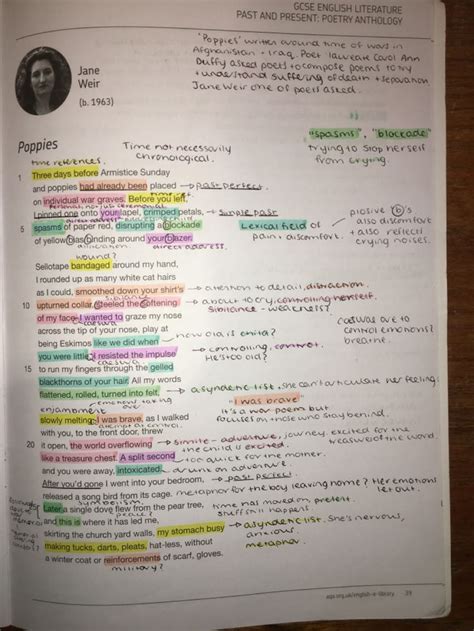 GCSE ENGLISH LITERATURE
PAST AND PRESENT: POETRY ANTHOLOGY
'Poppies' written around time of wars in
Afghanistan + Iraq. Poet laureate Carol Ann
Duffy asked poets to compose poems to try
+ understand suffering of death + separation
Jane Weir one of poets asked.
Jane
Weir
(b. 1963)
"spasms", "blockade"
trying to stop herself
from crying.
Poppies
Time not necessarily
chronological.
time references.
1 Three days before Armistice Sunday
and poppies had already been placed → past perfect.
on individual war graves. Before you left,
I pinned one onto your lapel, crimped petals, → simple past
5 spasms of paper red, disrupting a blockade
Lexical field of
pain + discomfort
plosive 'b's
also discomfort
+ also reflect
crying noises.
of yellow bias binding around your blazer.
alliteration direct address.
wound?
Sellotape bandaged around my hand,
I rounded up as many white cat hairs
as I could, smoothed down your shirt's → attention to detail, distraction.
sibilance
10 upturned collar, steeled the softening → about to cry, controlling herself.
sibilance - weakness?
of my face. I wanted to graze my nose
caesura
caesura are to
control emotions?
breathe.
across the tip of your nose, play at
being Eskimos like we did when
how old is child?
you were little. I resisted the impulse → controlling, control.
He's too old?
caesura
15 to run my fingers through the gelled
blackthorns of your hair. All my words → asyndetic list, she can't articulate her feelings
flattened, rolled, turned into felt,
"I was brave"
enjambment
slowly melting. I was brave, as I walked
It's a war poem but
focuses on those who stay behind.
with you, to the front door, threw
20 it open, the world overflowing → simile - adventure, journey, excited for the
the child is excited. treasure of the world
like a treasure chest. A split second → too quick for the mother.
and you were away, intoxicated. → drunk on adventure.
After you'd gone I went into your bedroom, → past perfect.
released a song bird from its cage. metaphor for the boy leaving home? Her emotions
let out.
symbolism
Later a single dove flew from the pear tree,
peace
time has moved on present
stuff is happen
and this is where it has led me,
skirting the church yard walls, my stomach busy → asyndetic list. She's nervous,
anxious
making tucks, darts, pleats, hat-less, without
metaphor
a winter coat or reinforcements of scarf, gloves.
military?
aqa.org.uk/english-e-library 39